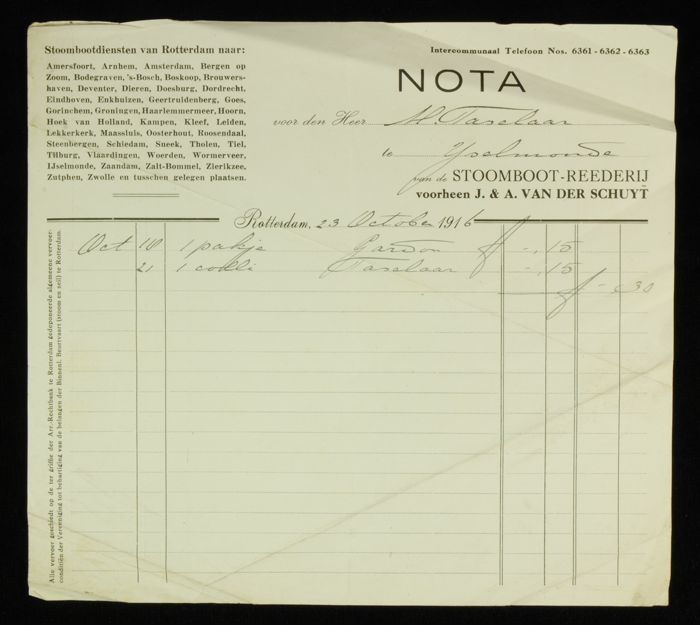 Stoombootdiensten van Rotterdam naar:
Amersfoort, Arnhem, Amsterdam, Bergen op
Zoom, Bodegraven, 's-Bosch, Boskoop, Brouwers-
haven, Deventer, Dieren, Doesburg, Dordrecht,
Eindhoven, Enkhuizen, Geertruidenberg, Goes,
Gorinchem, Groningen, Haarlemmermeer, Hoorn,
Hoek van Holland, Kampen, Kleef, Leiden,
Lekkerkerk, Maassluis, Oosterhout, Roosendaal,
Steenbergen, Schiedam, Sneek, Tholen, Tiel,
Tilburg, Vlaardingen, Woerden, Wormerveer,
IJselmonde, Zaandam, Zalt-Bommel, Zierikzee,
Zutphen, Zwolle en tusschen gelegen plaatsen.
Intercommunaal Telefoon Nos. 6361-6362-6363
NOTA
voor den Heer M. Taselaar
te Yselmonde
van de STOOMBOOT-REEDERIJ
voorheen J. & A. VAN DER SCHUYT
Rotterdam, 23 October 1916
Oct 1 pakje f -,15
21 1 colli Taselaar -,15
f -,30
Alle vervoer geschiedt op de ter griffie der Arr.-Rechtbank te Rotterdam gedeponeerde algemeene vervoer-
conditiën der Vereeniging tot behartiging van de belangen der Binnenl. Beurtvaart (stoom en zeil) te Rotterdam.